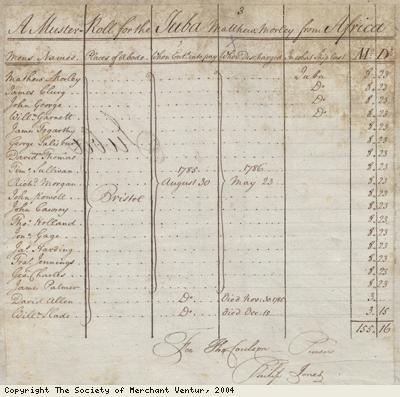 3
A Muster-Roll for the Juba Matthew Morley from Africa
Mens Names. Places of Abode. When Ent.d into pay When Discharged In what Ship last M.s D.s
Mathew Morley Juba 8 23
James Clurg D.o 8 23
John George D.o 8 23
Will.m Garnett D.o 8 23
Jam.s Fogarthy 8 23
George Salisbury 8 23
David Thomas 8 23
Tim.y Sullivan 1785 1786 8 23
Rich.d Morgan August 30 May 23 8 23
John Powell Bristol 8 23
John Cawsey 8 23
Tho.s Holland 8 23
Jon.n Gage 8 23
Ja.s Harding 8 23
Fra.s Jennings 8 23
Geo. Charles 8 23
James Palmer 8 23
David Allen D.o Died Nov: 30 1785 3
Will.m Slade D.o Died Dec: 15 3 15
155 16
For Tho.s Coulson
Philip Jones
Copyright The Society of Merchant Ventur, 2004